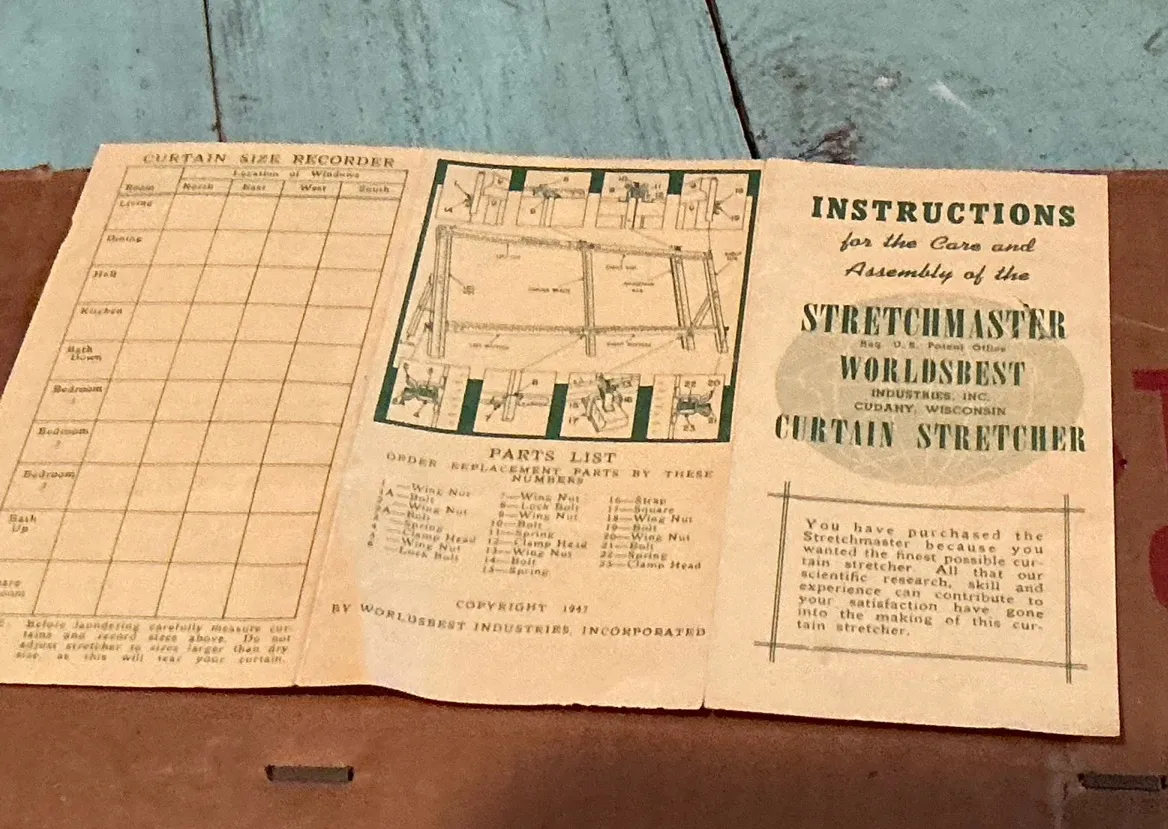 CURTAIN SIZE RECORDER
Location of Windows
Room North East West South
Living
Dining
Hall
Kitchen
Bath
Down
Bedroom
1
Bedroom
2
Bedroom
3
Bath
Up
Before laundering carefully measure cur-
tains and record sizes above. Do not
adjust stretcher to sizes larger than dry
size, as this will tear your curtain.
PARTS LIST
ORDER REPLACEMENT PARTS BY THESE
NUMBERS
1 —Wing Nut
1A—Bolt
2—Wing Nut
2A—Bolt
3—Spring
4—Clamp Head
5—Wing Nut
6—Lock Bolt
7—Wing Nut
8—Lock Bolt
9—Wing Nut
10—Bolt
11—Spring
12—Clamp Head
13—Wing Nut
14—Bolt
15—Spring
16—Strap
17—Square
18—Wing Nut
19—Bolt
20—Wing Nut
21—Bolt
22—Spring
23—Clamp Head
COPYRIGHT 1947
BY WORLDSBEST INDUSTRIES, INCORPORATED
INSTRUCTIONS
for the Care and
Assembly of the
STRETCHMASTER
Reg. U.S. Patent Office
WORLDSBEST
INDUSTRIES, INC.
CUDAHY, WISCONSIN
CURTAIN STRETCHER
You have purchased the
Stretchmaster because you
wanted the finest possible cur-
tain stretcher. All that our
scientific research, skill and
experience can contribute to
your satisfaction have gone
into the making of this cur-
tain stretcher.